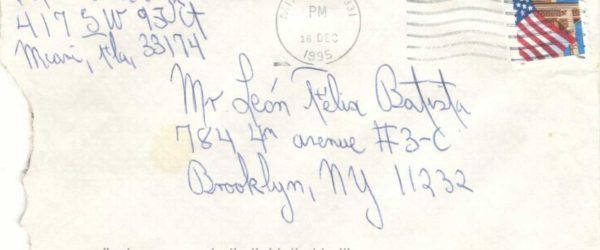 417 SW 93 Ct
Miami, Fla, 33174
PM
16 DEC
1995
Mr. León Félix Batista
784 4th avenue #3-C
Brooklyn, NY 11232